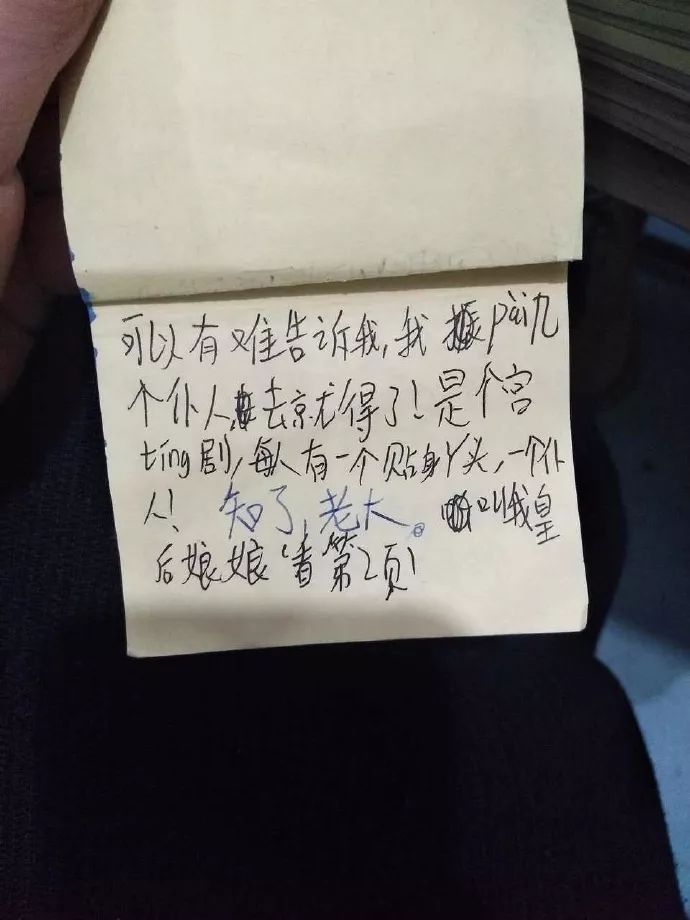 可以有难告诉我,我pài几
个仆人去京尤得了!是个宫
ting剧,每人有一个贴身丫头,一个仆
人! 知了,老大。叫我皇
后娘娘!看第2页!